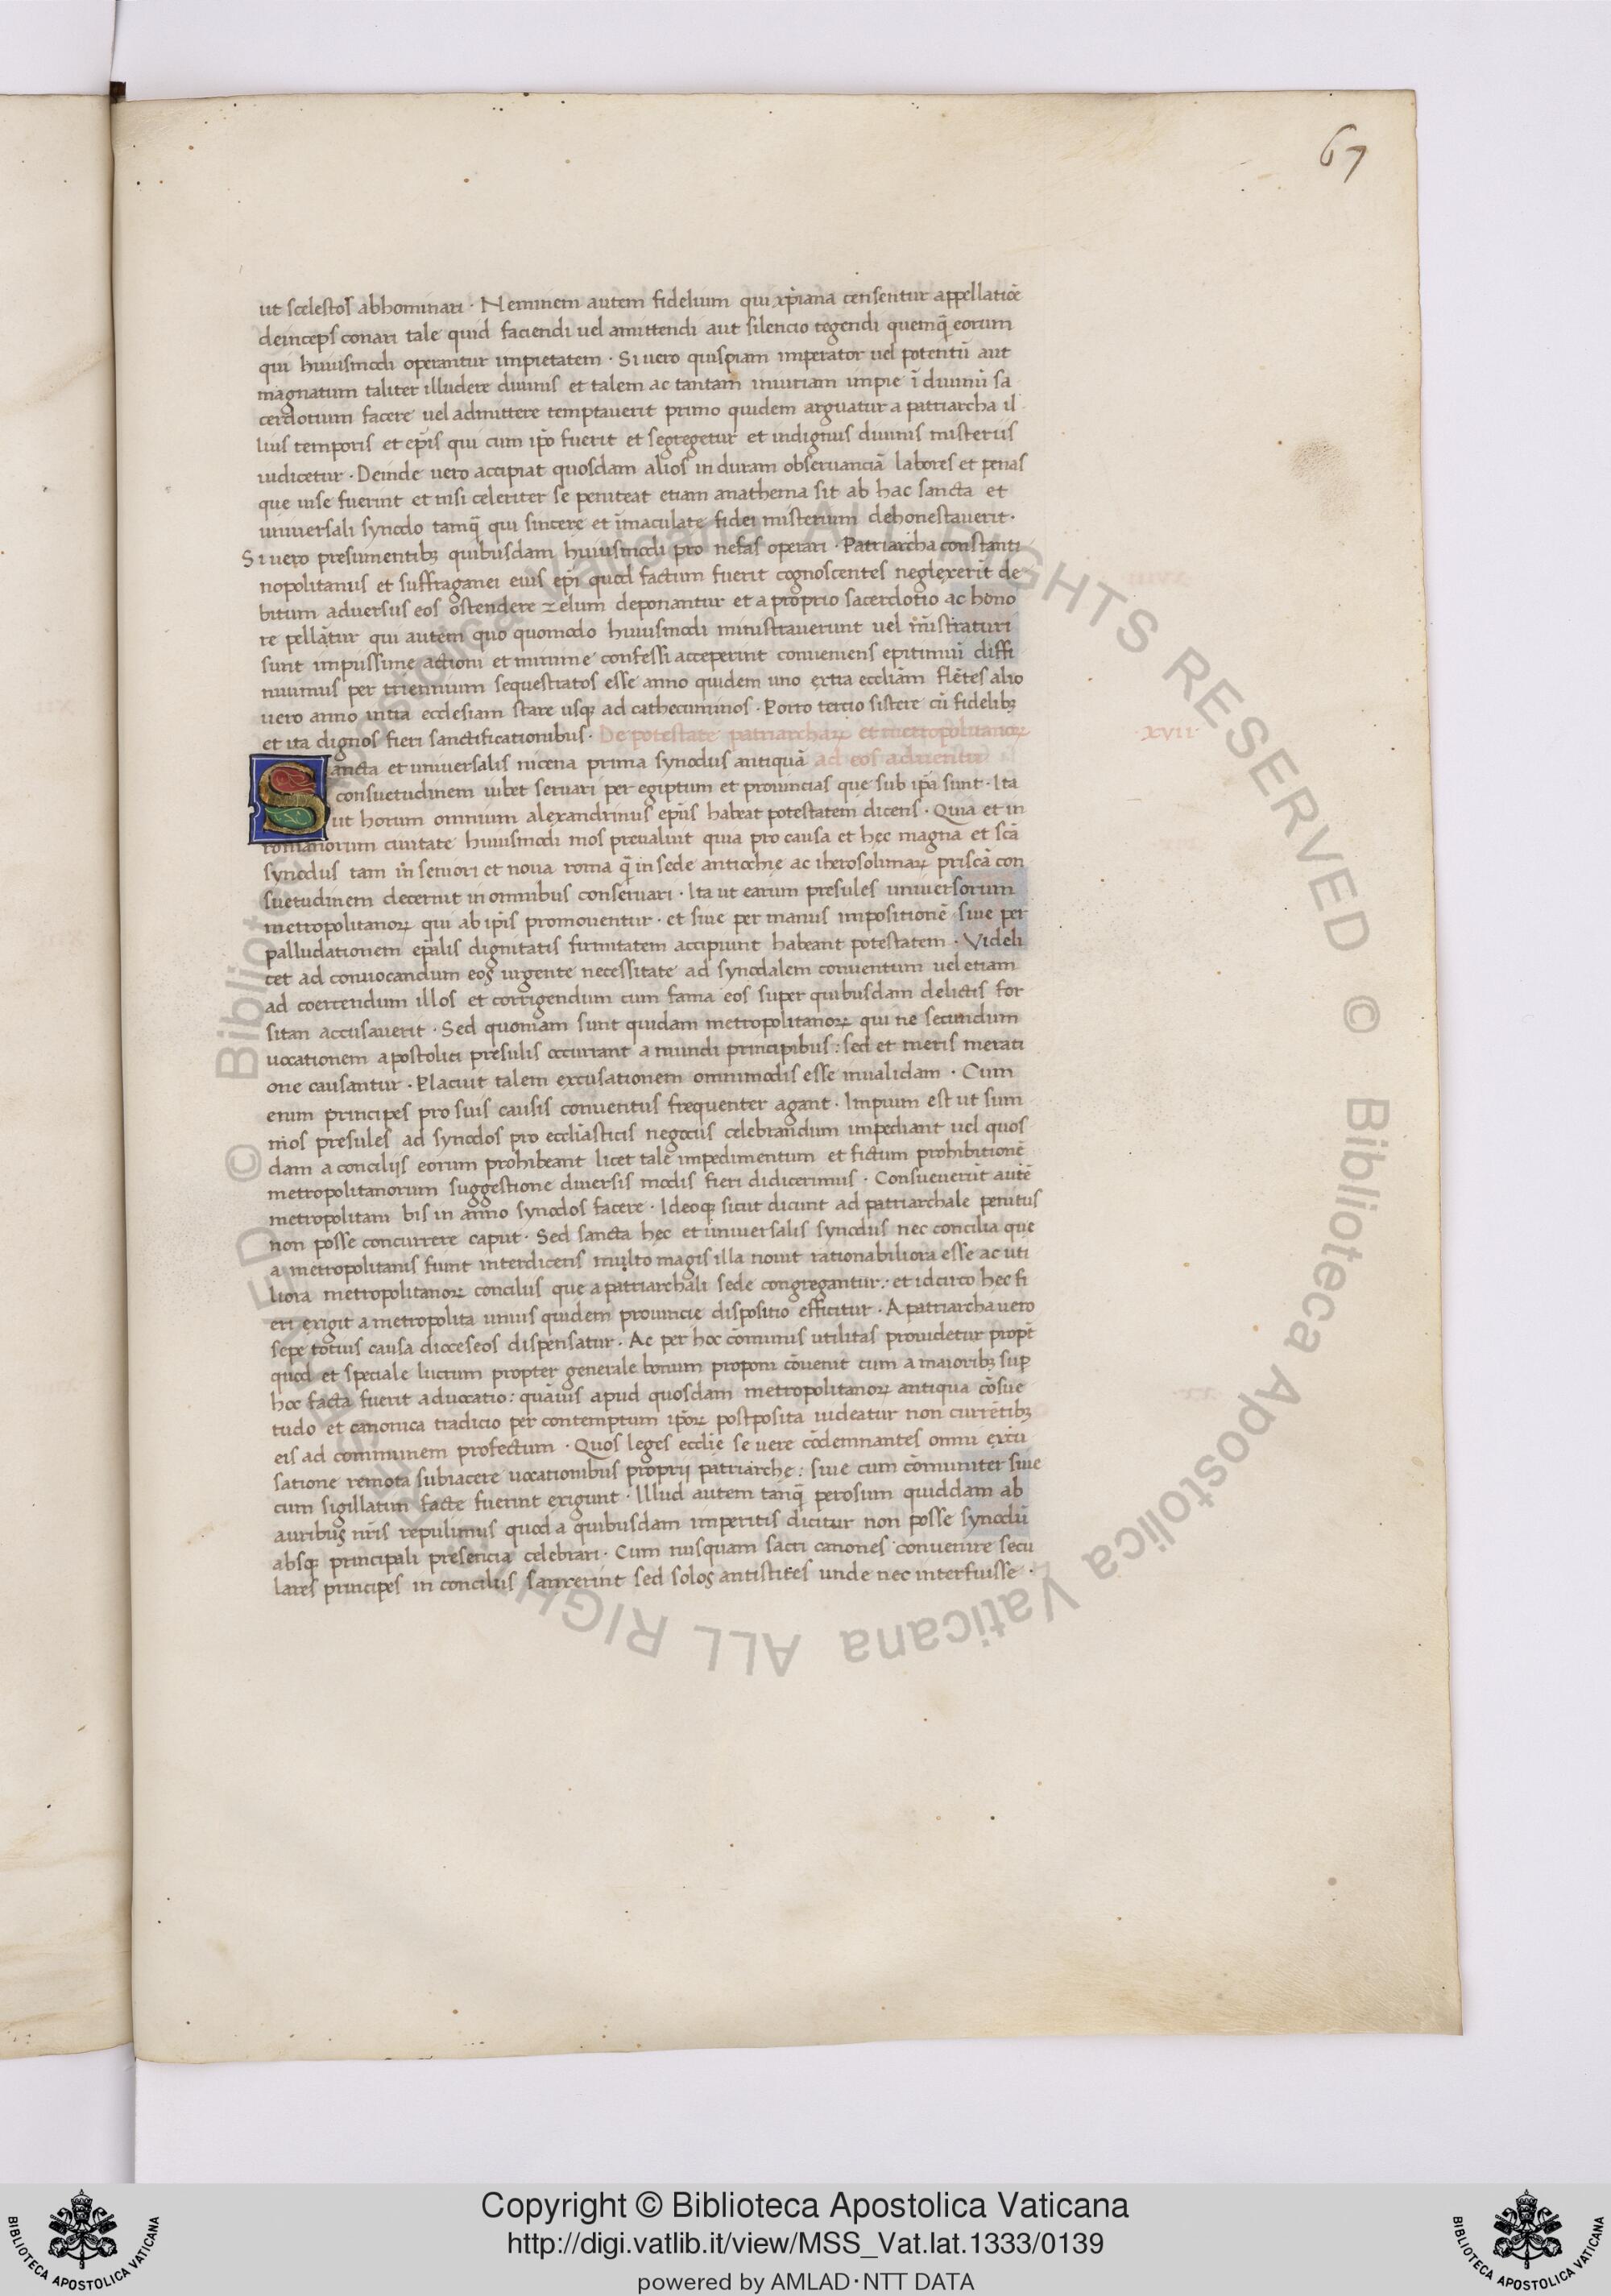 67
ut scelestos abhominari · Neminem autem fidelium qui xp̄iana censentur appellatiōe
deinceps conari tale quid faciendi vel amittendi aut silencio tegendi quemq̄ eorum
qui huiusmodi operantur impietatem · Si vero quispiam imperator vel potentū aut
magnatum taliter illudere divinis et talem ac tantam iniuriam impie ī divinū sa
cerdotium facere vel admittere temptaverit primo quidem arguatur a patriarcha il
lius temporis et ep̄is qui cum ip̄o fuerit et segregetur et indignus divinis misteriis
iudicetur · Deinde vero accipiat quosdam alios in duram observanciā labores et penas
que vise fuerint et nisi celeriter se peniteat etiam anathema sit ab hac sancta et
universali synodo tamq̄ qui sincere et īmaculate fidei misterium dehonestaverit ·
Si vero presumentibꝫ quibusdam huiusmodi pro nefas operari · Patriarcha constanti
nopolitanus et suffraganei eius ep̄i quod factum fuerit cognoscentes neglexerīt de
bitum adversus eos ostendere zelum deponantur et a proprio sacerdotio ac hono
re pellātur qui autem quo quomodo huiusmodi ministraverunt vel ministraturi
sunt impiissime actioni et minime confessi acceperint conveniens epitimiū diffi
nivimus per triennium sequestratos esse anno quidem uno extra eccl̄iam flētes alio
vero anno intra ecclesiam stare usqꝫ ad cathecuminos · Porro tercio sistere cū fidelibꝫ
et ita dignos fieri sanctificationibus · De potestate patriarcharꝝ et metropolitanorꝝ
· XVII ·
Sancta et universalis nicena prima synodus antiquā ad eos
consuetudinem iubet servari per egiptum et provincias que sub ip̄a sunt · Ita
ut horum omnium alexandrinus ep̄us habeat potestatem dicens · Quia et in
romanorum civitate huiusmodi mos prevaluit quia pro causa et hec magna et scā
synodus tam in seniori et nova roma q̄ in sede antiochie ac iherosolimarꝝ priscā con
suetudinem decernit in omnibus conservari · Ita ut earum presules universorum
metropolitanorꝝ qui ab ip̄is promoventur · et sive per manus impositionē sive per
palludationem ep̄alis dignitatis firmitatem accipiunt habeant potestatem · Videli
cet ad convocandum eos urgente necessitate ad synodalem conventum vel etiam
ad coercendum illos et corrigendum cum fama eos super quibusdam delictis for
sitan accusaverit · Sed quoniam sunt quidam metropolitanorꝝ qui ne secundum
vocationem apostolici presulis occurrant a mundi principibus : sed et meris merati
one causantur · Placuit talem excusationem omnimodis esse invalidam · Cum
enim principes pro suis causis conventus frequenter agant · Impium est ut sum
mos presules ad synodos pro eccl̄iasticis negociis celebrandum impediant vel quos
dam a conciliis eorum prohibeant licet tale impedimentum et fictum prohibitionē
metropolitanorum suggestione diversis modis fieri didicerimus · Consueverūt autē
metropolitani bis in anno synodos facere · Ideoqꝫ sicut dicunt ad patriarchale penitus
non posse concurrere caput · Sed sancta hec et universalis synodus nec concilia que
a metropolitanis fiunt interdicens multo magis illa novit rationabiliora esse ac uti
liora metropolitanorꝝ conciliis que a patriarchali sede congregantur : et idcirco hec fi
eri exigit a metropolita unius quidem provincie dispositio efficitur · A patriarcha vero
sepe totius causa dioceseos dispensatur · Ac per hoc cōmunis utilitas providetur propt̄
quod et speciale lucrum propter generale bonum proponi cōvenit cum a maioribꝫ sup̄
hoc facta fuerit advocatio : quāvis apud quosdam metropolitanorꝝ antiqua cōsue
tudo et canonica tradicio per contemptum ip̄orꝝ postposita videatur non currētibꝫ
eis ad communem profectum · Quos leges eccl̄ie se vere cōdemnantes omni excu
satione remota subiacere vocationibus proprii patriarche : sive cum cōmuniter sive
cum sigillatim facte fuerint exigunt · Illud autem tanq̄ perosum quiddam ab
auribus nr̄is repulimus quod a quibusdam imperitis dicitur non posse synodū
absqꝫ principali presencia celebrari · Cum nusquam sacri canones convenire secu
lares principes in conciliis sanxerint sed solos antistites unde nec interfuisse ·
Copyright © Biblioteca Apostolica Vaticana
http://digi.vatlib.it/view/MSS_Vat.lat.1333/0139
powered by AMLAD·NTT DATA
BIBLIOTECA APOSTOLICA VATICANA
BIBLIOTECA APOSTOLICA VATICANA